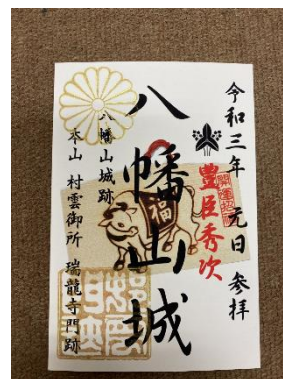 令和三年 元日 参拝
豊臣秀次
八幡山城
福
八幡山城跡
本山 村雲御所 瑞龍寺門跡